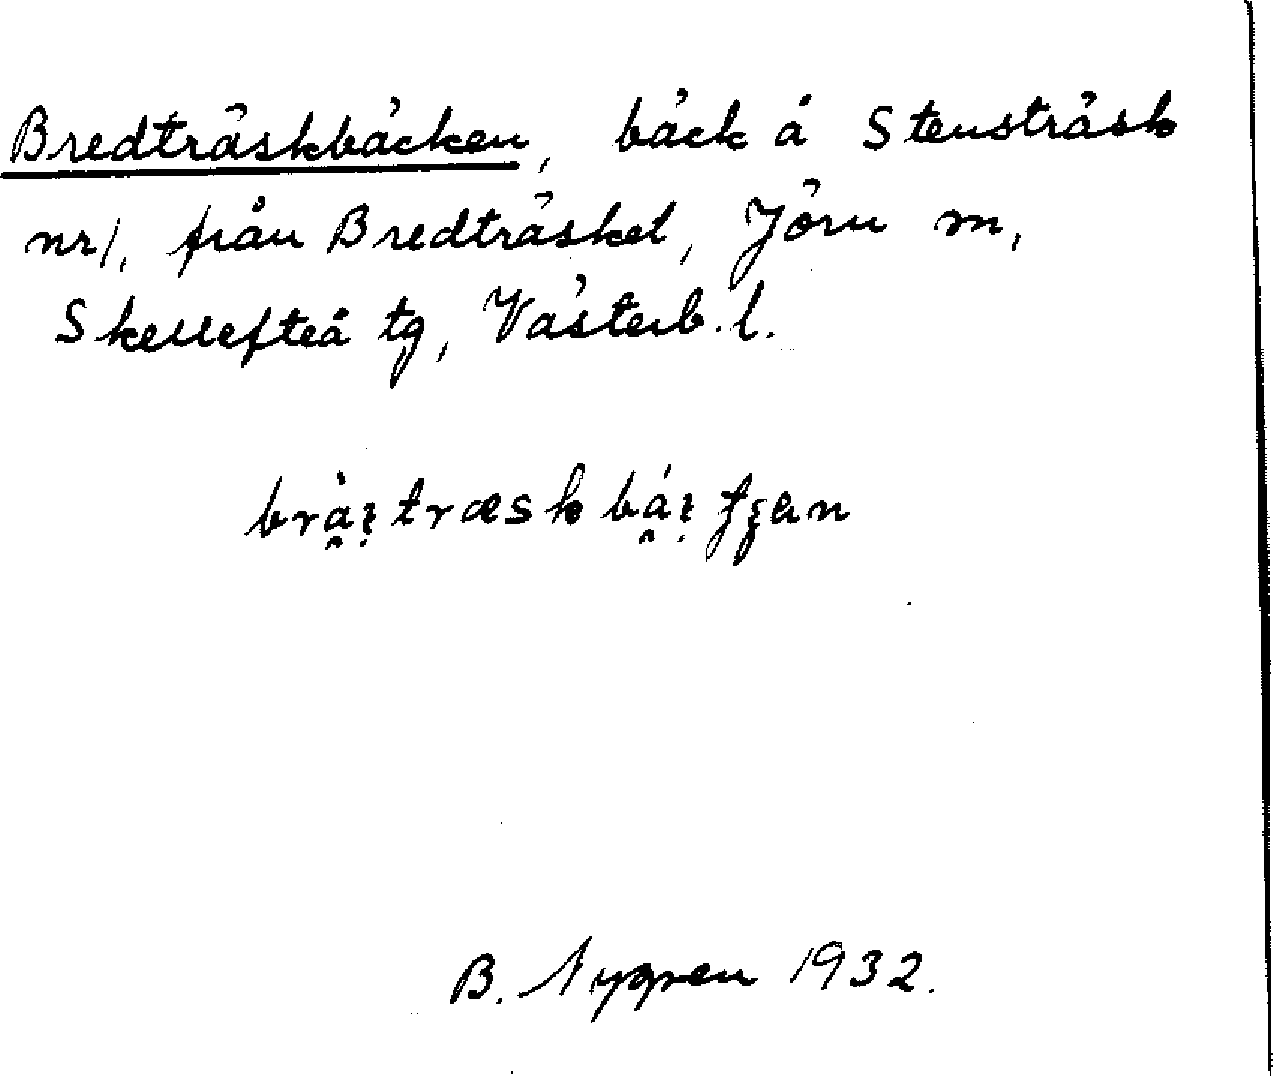 Bredträskbäcken, bäck å Stensträsk
nr 1, från Bredträsket, Jörn sn,
Skellefteå tg, Västerb. l.
B. Nygren 1932.